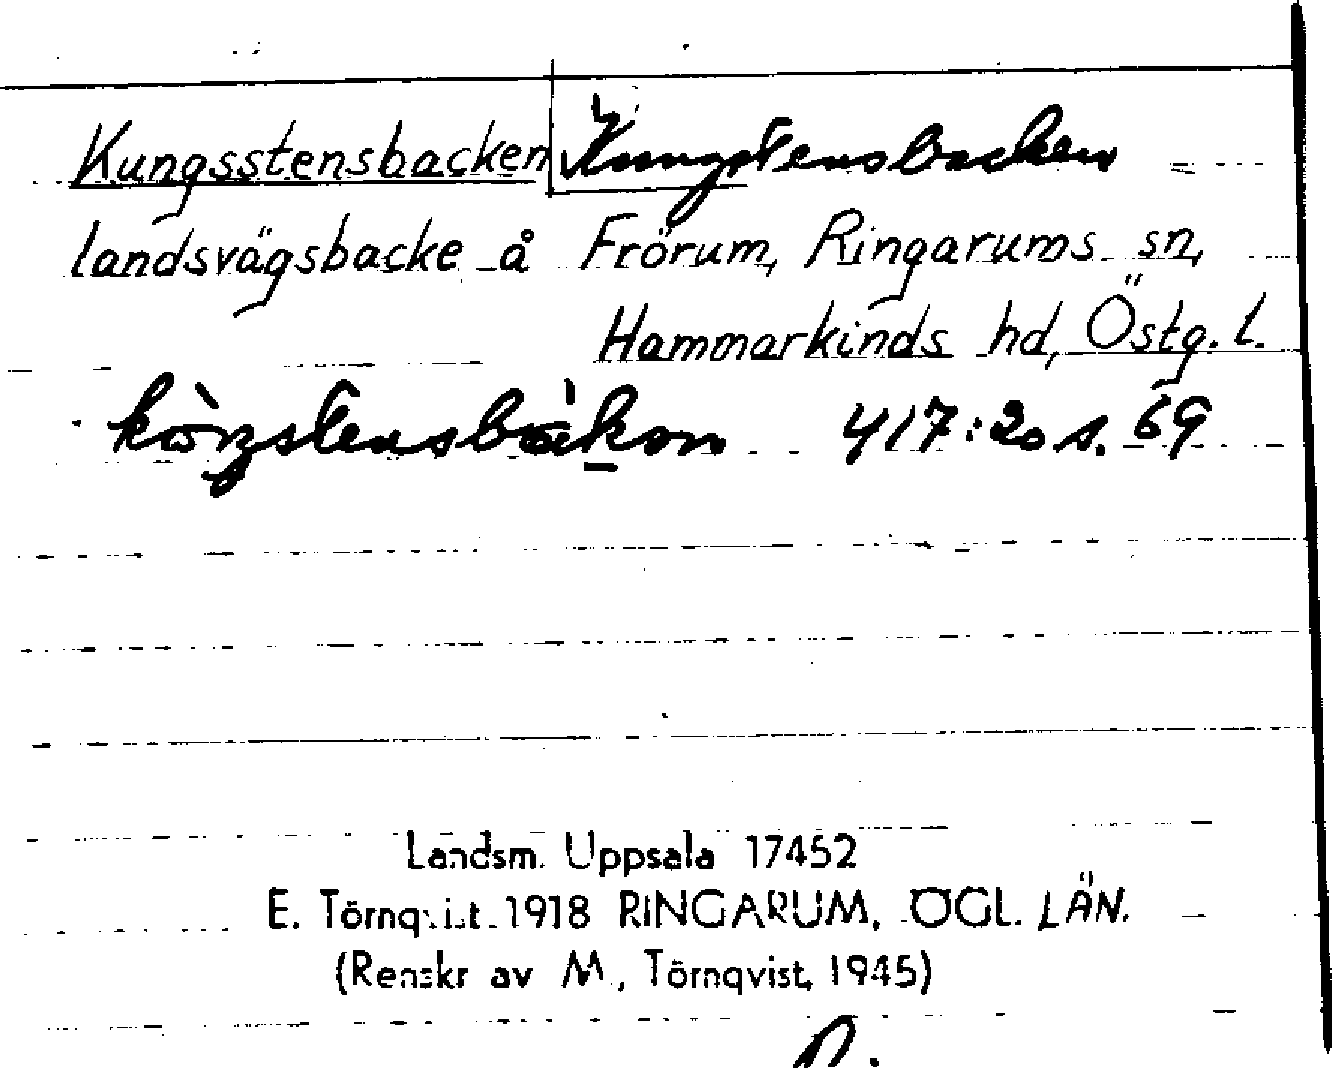 Kungsstensbacken Kungstensbacken
landsvägsbacke å Frörum, Ringarums sn,
Hammarkinds hd, Östg. l.
417:20 s. 69
Landsm. Uppsala 17452
E. Törnqvist 1918 RINGARUM, ÖGL. LÄN.
(Renskr av M. Törnqvist, 1945)